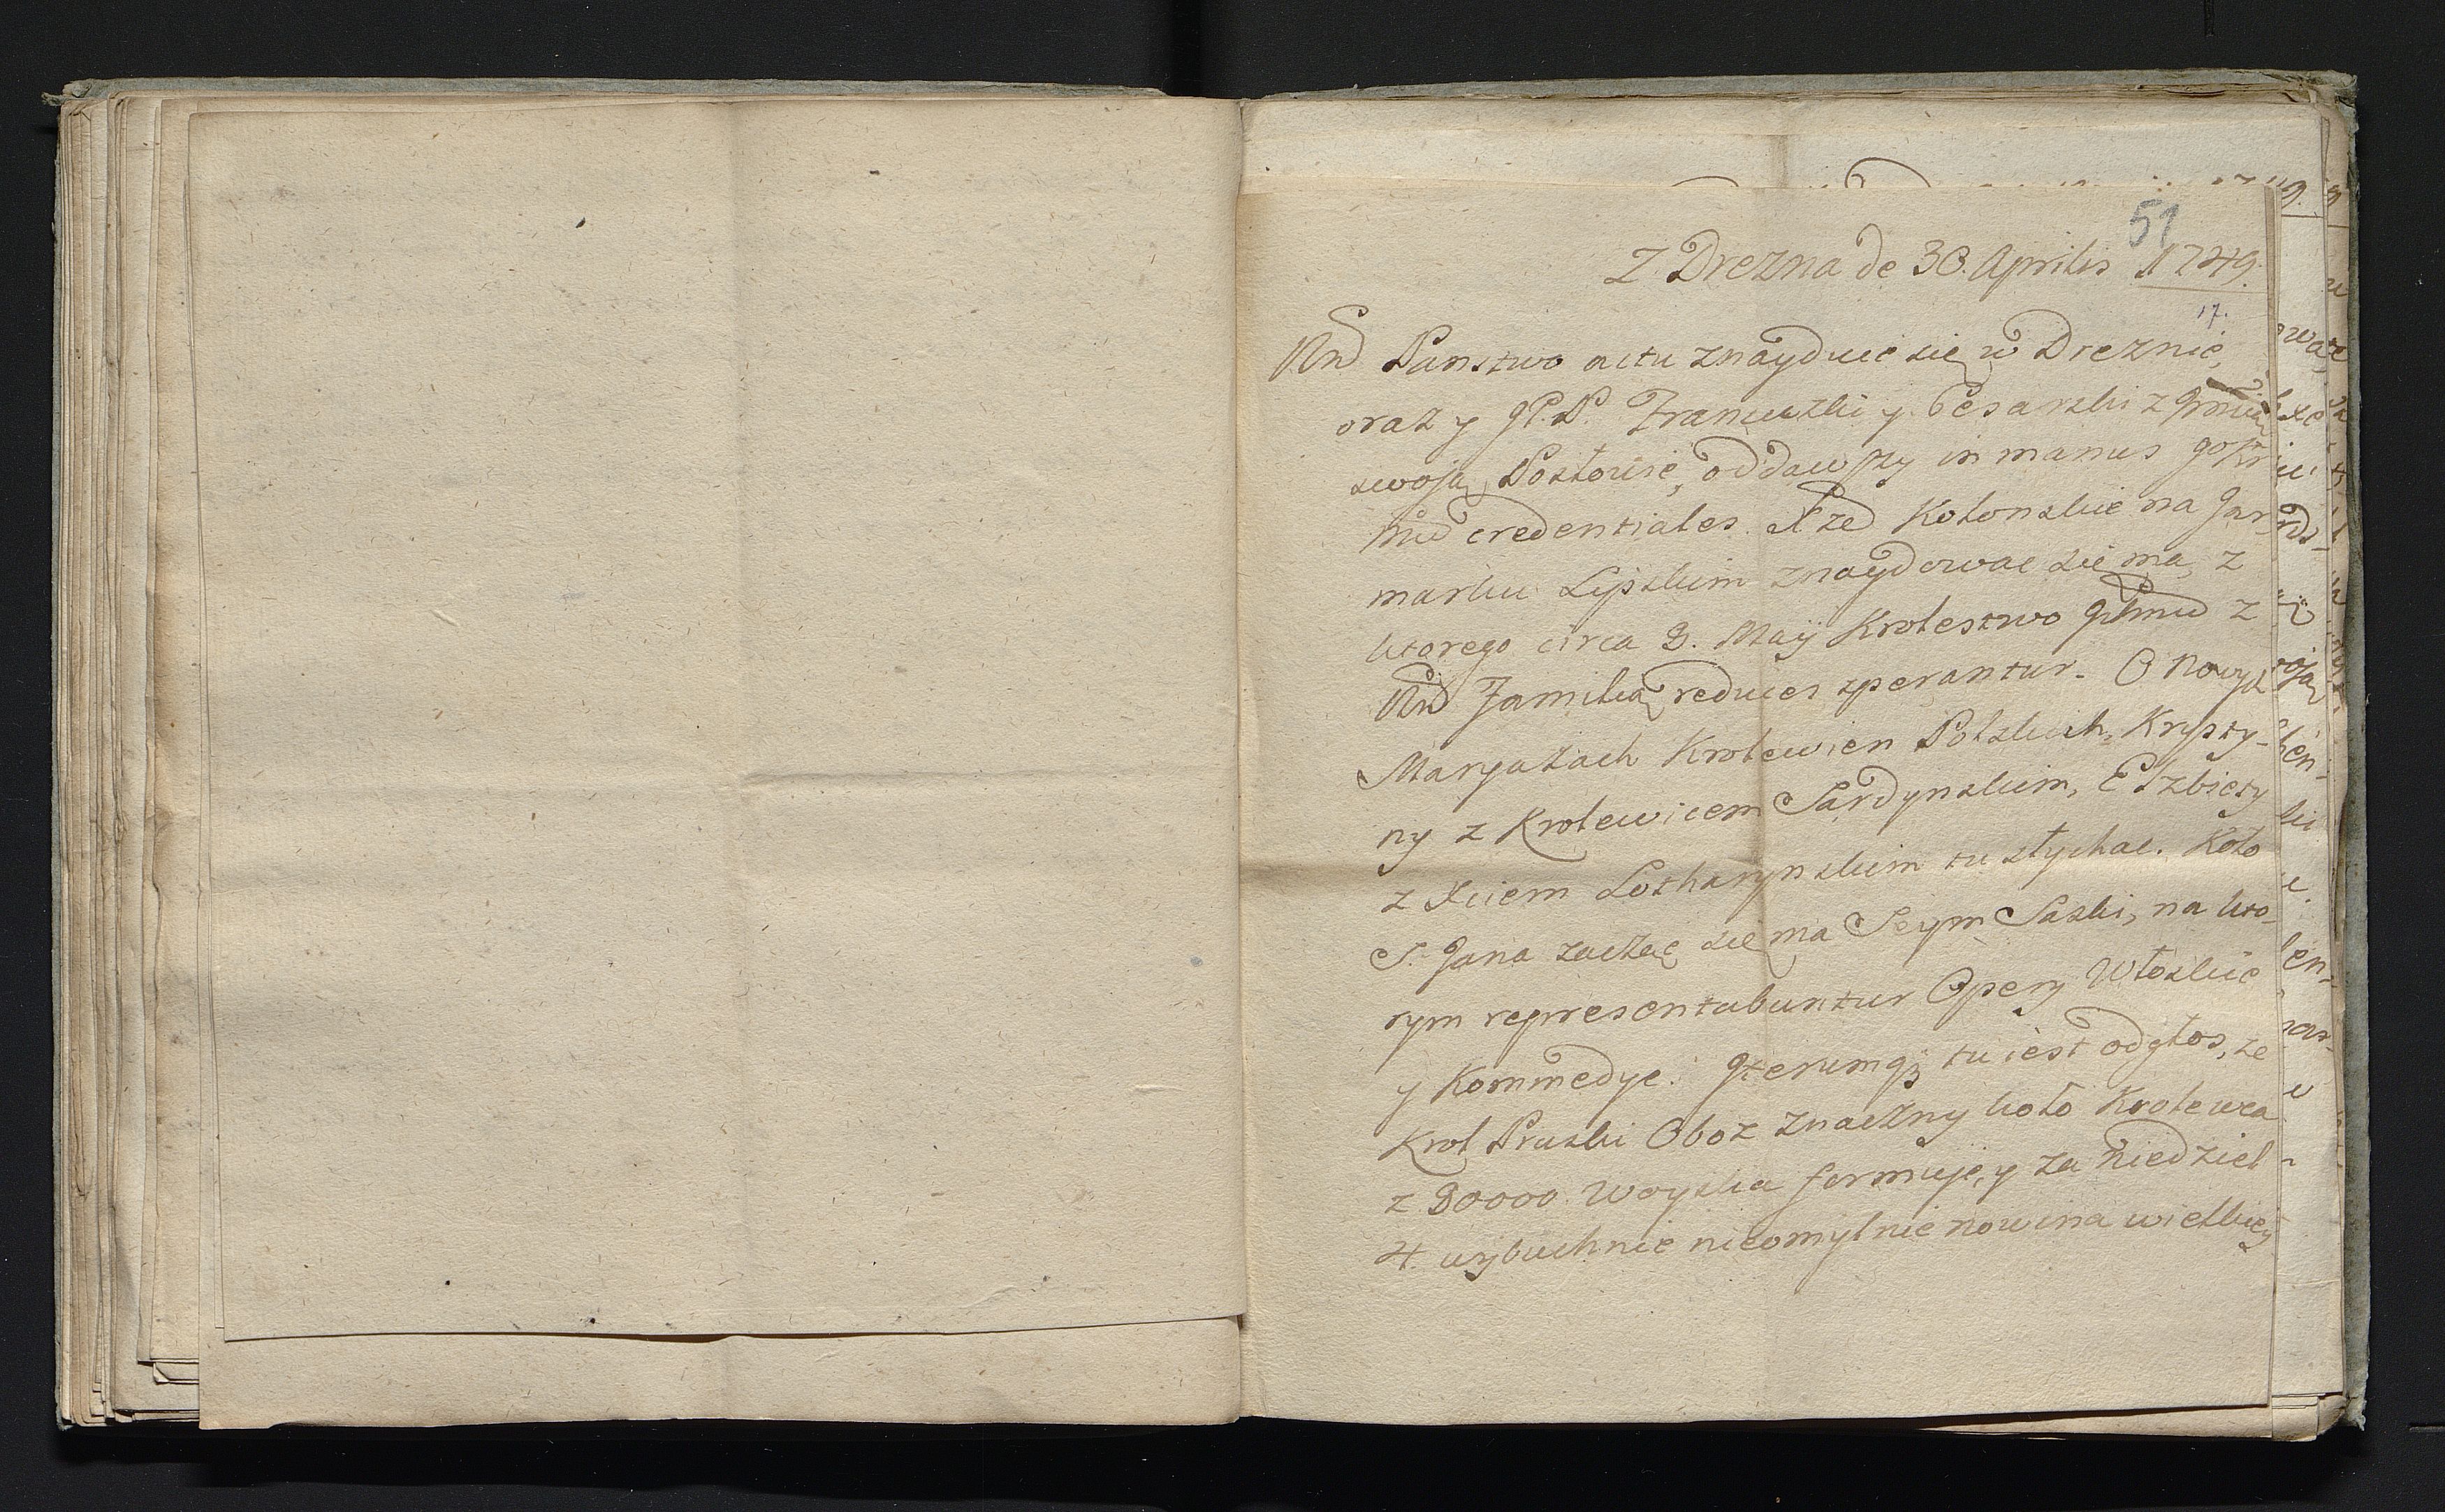 51
Z Drezna de 30. Aprilis 1749.
17.
Państwo actu znayduie się w Dreznie,
oraz y Francuzki y Cesarski z
swoią Posłowie, oddawszy in manus
credentiales. Xże Kolonskie na Jar
marku Lipskim znaydować się ma, z
ktorego circa 8. Maij Krolestwo z
Familią reduces sperantur. O nowych
Maryażach Krolewien Polskich, Krysty-
ny z Krolewicem Sardynskim, Elzbiety
z Xciem Lotharynskim tu słychac. Koło
S. Jana zacząc się ma Seym Saski, na kto-
rym representabuntur Opery Włoskie
y Kommedye. Iterumq; tu iest odgłos, ze
Krol Pruski Oboz znaczny koło Krolewca
z 80000 Woyska formuje, y za niedziel
4. wybuchnie nieomylnie nowina wielkiey